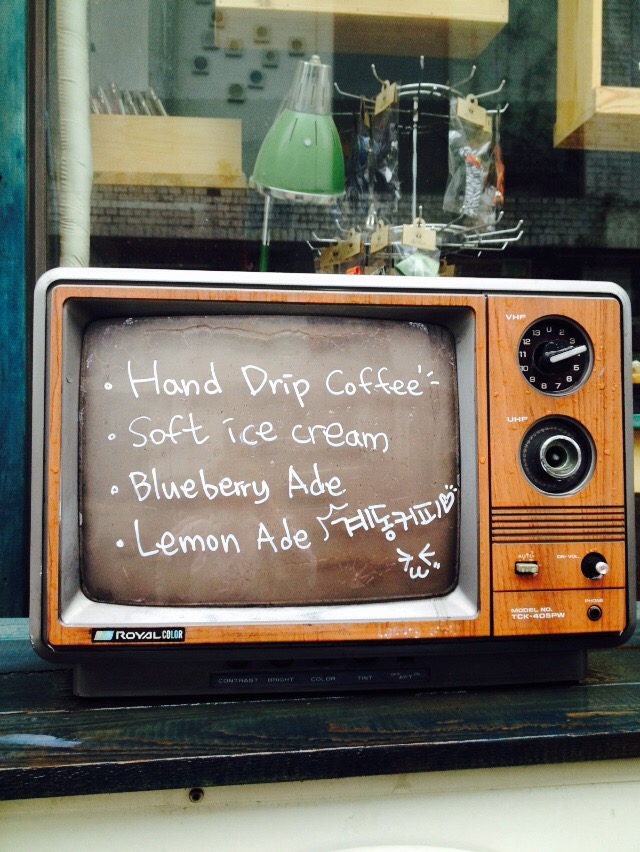 • Hand Drip Coffee
• Soft ice cream
• Blueberry Ade
• Lemon Ade
계동커피
VHF
U 2 3 4 5 6 7 8 9 10 11 12 13
UHF
AUTO
ON-VOL
PHONE
MODEL NO.
TCK-405PW
ROYAL COLOR
CONTRAST BRIGHT COLOR TINT